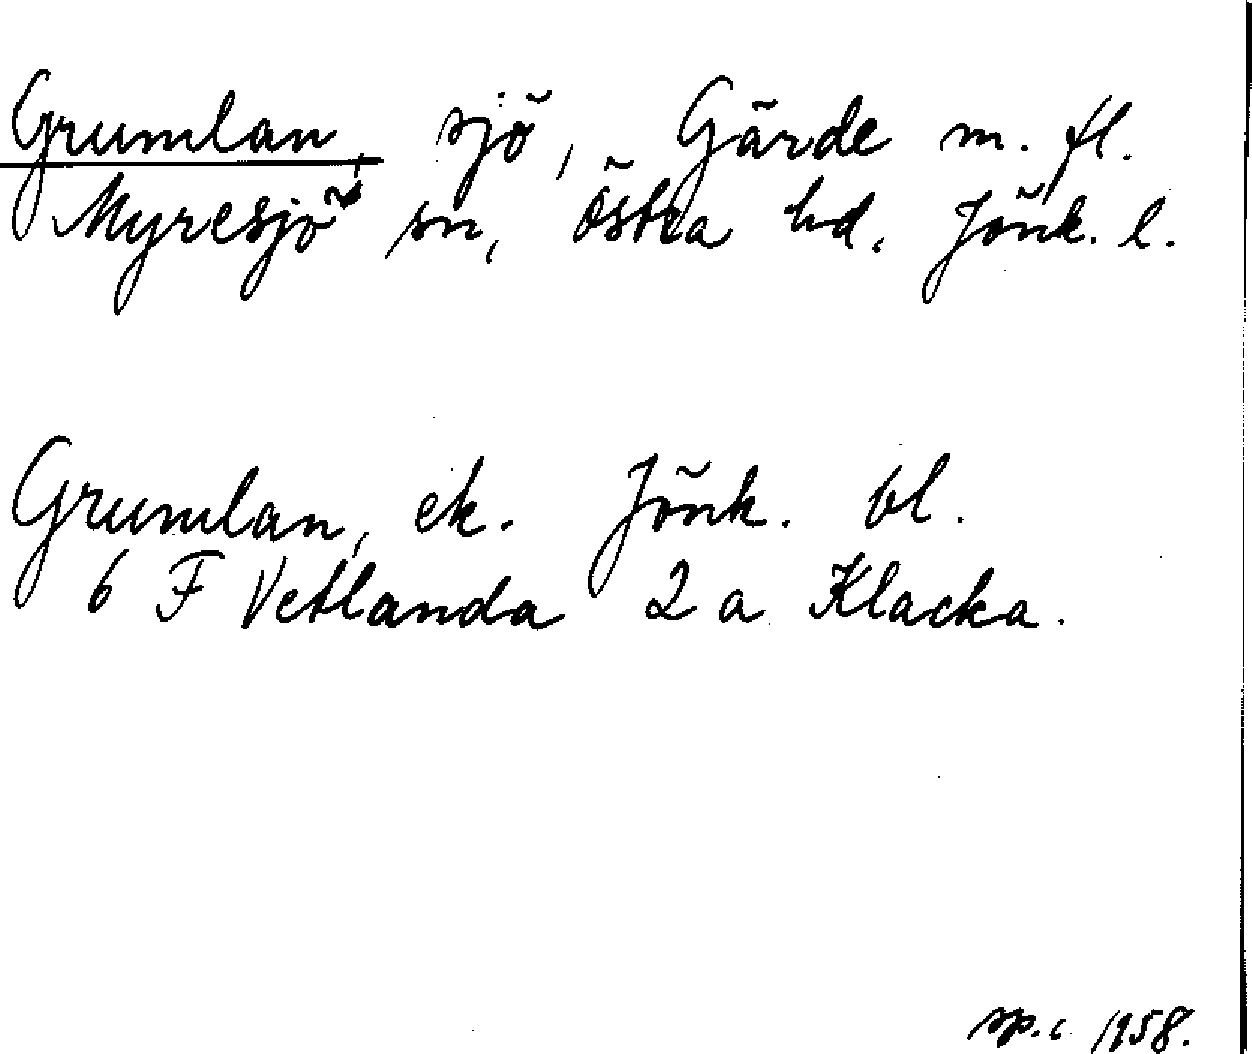 Grumlan, sjö, Gärde m. fl.
Myresjö sn, Östra hd. Jönk. l.
Grumlan, ek. Jönk. bl.
6 F Vetlanda 2 a Klacka.
sp.c. 1958.